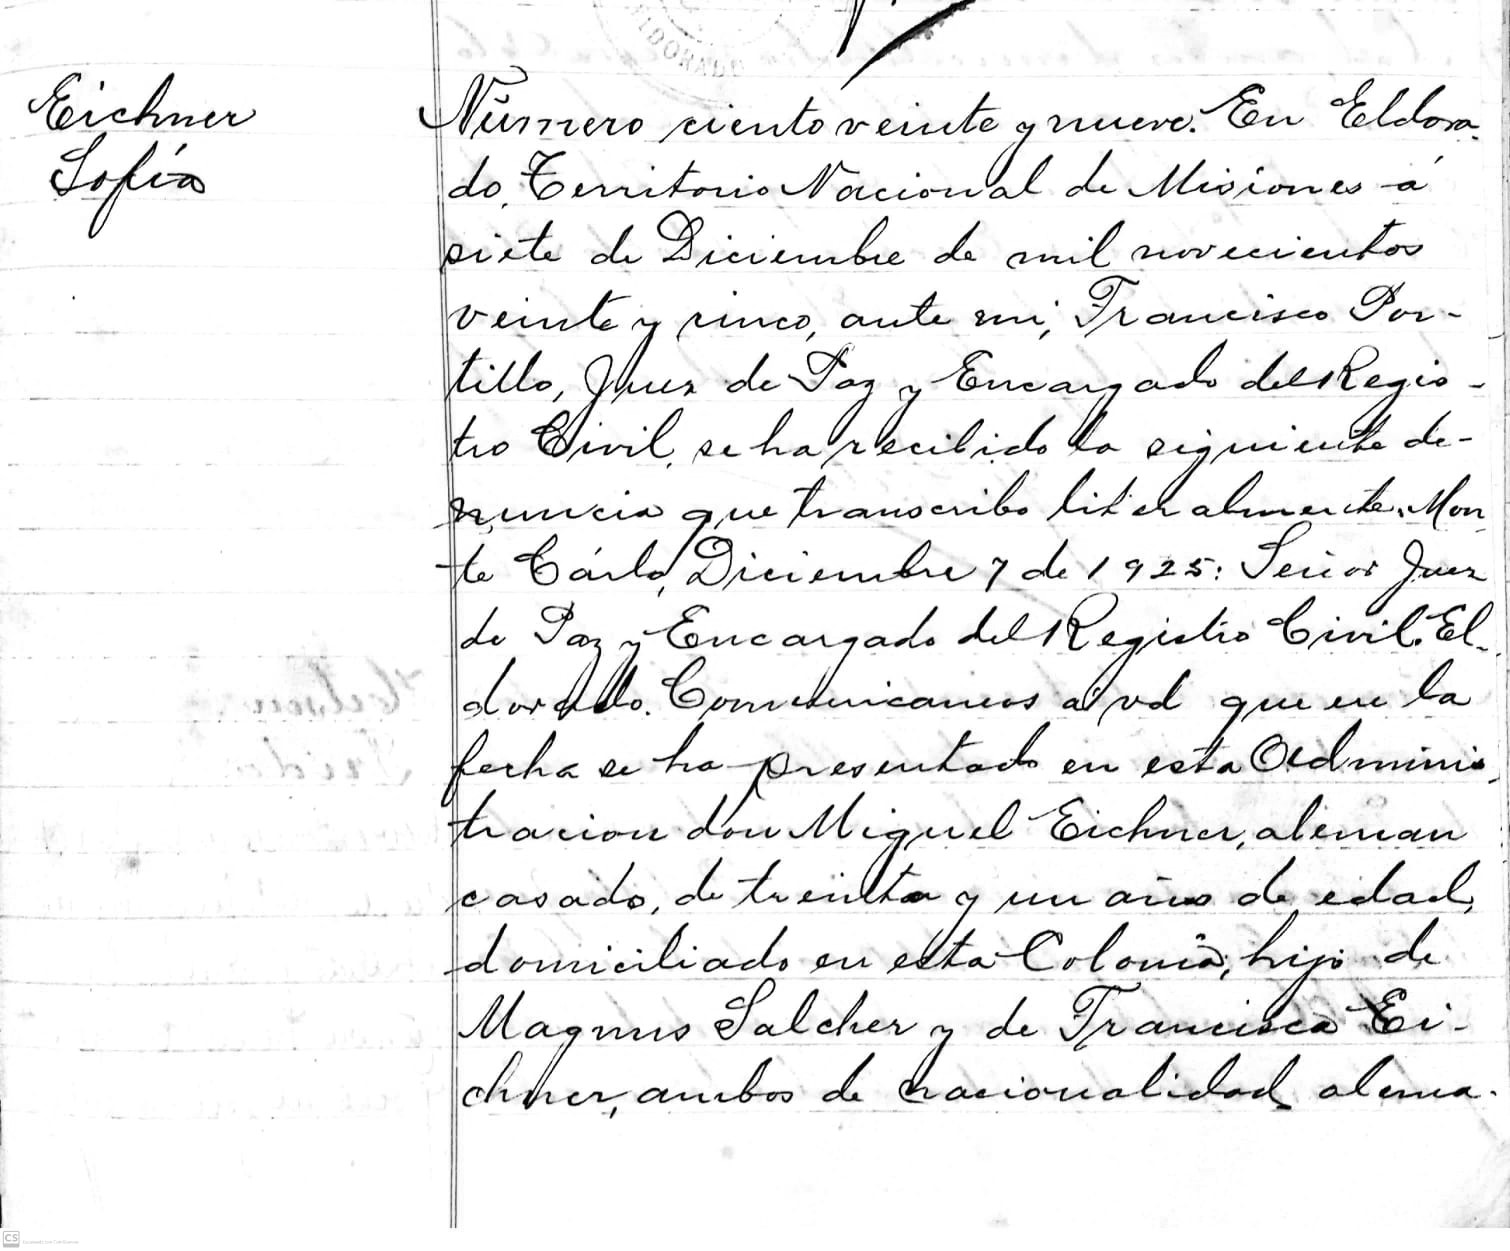 ELDORADO
Eichner
Sofía
Número ciento veinte y nueve. En Eldora-
do, Territorio Nacional de Misiones á
siete de Diciembre de mil novecientos
veinte y cinco, ante mi, Francisco Por-
tillo, Juez de Paz y Encargado del Regis-
tro Civil, se ha recibido la siguiente de-
nuncia que transcribo literalmente. Mon
te Cárlo, Diciembre 7 de 1925: Señor Juez
de Paz y Encargado del Registro Civil. El-
dorado. Comunicamos a vd que en la
fecha se ha presentado en esta Adminis-
tracion don Miguel Eichner, aleman
casado, de treinta y un años de edad,
domiciliado en esta Colonia, hijo de
Magnus Salcher y de Francisca Ei-
chner, ambos de nacionalidad alema-
CS